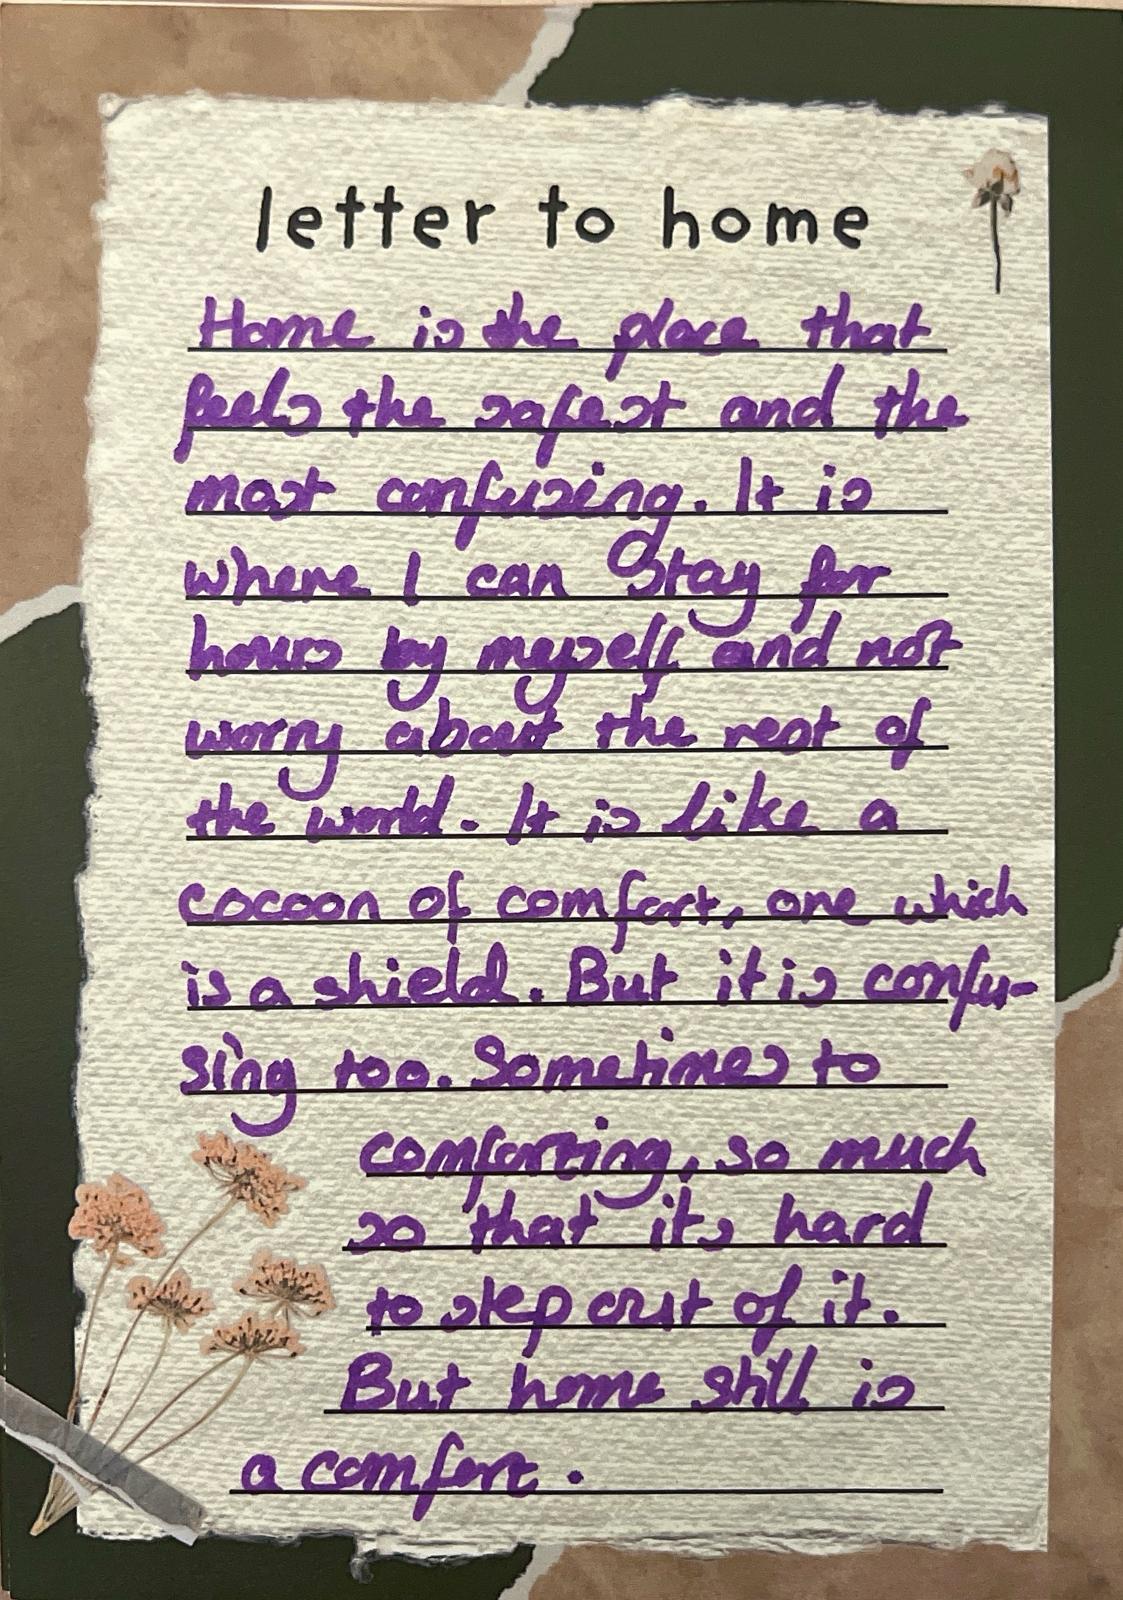 letter to home
Home is the place that
feels the safest and the
most confusing. It is
where I can Stay for
hours by myself and not
worry about the rest of
the world. It is like a
cocoon of comfort, one which
is a shield. But it is confu-
sing too. Sometimes to
comforting, so much
so that its hard
to step out of it.
But home still is
a comfort.